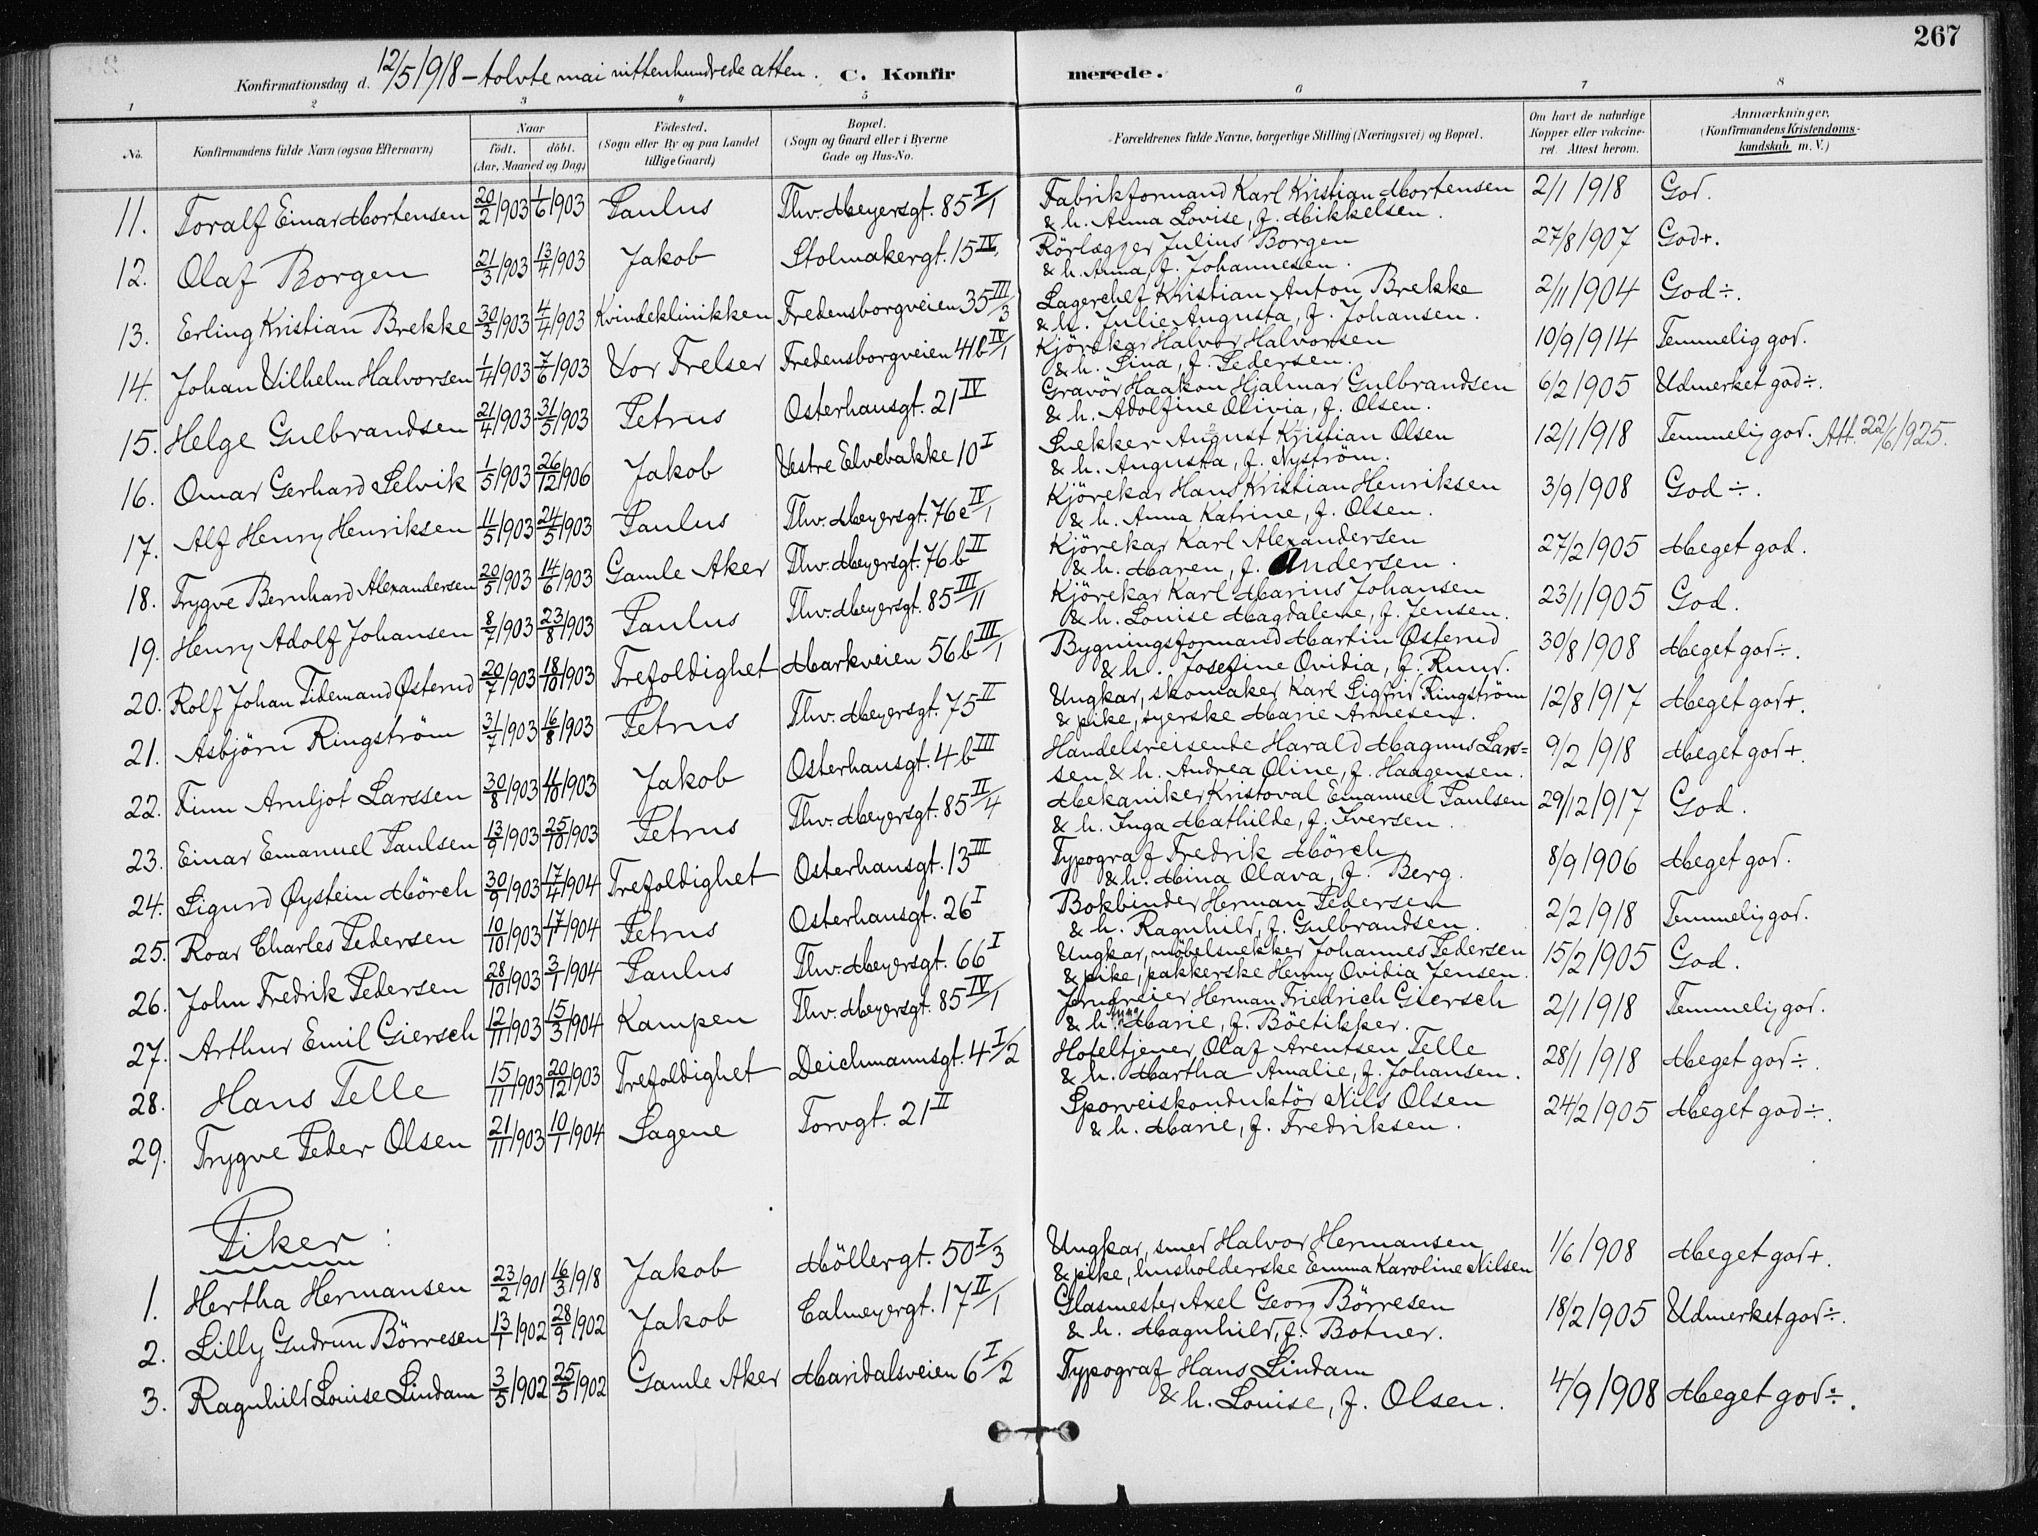 267
Konfirmationsdag d. 12/5 1918 – tolvte mai nittenhundrede atten. C. Konfirmerede.
1 2 3 4 5 6 7 8
No. Konfirmandens fulde Navn (ogsaa Efternavn) Naar født. døbt. (Aar, Maaned og Dag) Fødested. (Sogn eller By og paa Landet tillige Gaard) Bopæl. (Sogn og Gaard eller i Byerne Gade og Hus-No. Forældrenes fulde Navne, borgerlige Stilling (Næringsvei) og Bopæl. Om havt de naturlige Kopper eller vaccineret. Attest herom. Anmærkninger. (Konfirmandens Kristendomskundskab m. V.)
11. Toralf Einar Mortensen 20/2 1903 1/6 1903 Paulus Thv. Meyersgt. 85 I/1 Fabrikformand Karl Kristian Mortensen & h. Anna Lovise, f. Mikkelsen. 2/1 1918 God.
12. Olaf Borgen 21/3 1903 13/4 1903 Jakob Stolmakergt. 15 IV Rörlægger Julius Borgen & h. Anna, f. Johannesen. 27/8 1907 God+.
13. Erling Kristian Brekke 30/3 1903 4/4 1903 Kvindeklinikken Fredensborgveien 35 III/3 Lagerchef Kristian Anton Brekke & h. Julie Augusta, f. Johansen. 2/11 1904 God÷.
14. Johan Vilhelm Halvorsen 1/4 1903 7/6 1903 Vor Frelser Fredensborgveien 41b IV/1 Kjörekar Halvor Halvorsen & h. Lina, f. Pedersen. 10/9 1914 Temmelig god.
15. Helge Gulbrandsen 21/4 1903 31/5 1903 Petrus Osterhausgt. 21 IV Gravör Haakon Hjalmar Gulbrandsen & h. Adolfine Olivia, f. Olsen. 6/2 1905 Udmerket god÷.
16. Omar Gerhard Selvik 1/5 1903 26/12 1906 Jakob Vestre Elvebakke 10 I Snekker August Kristian Olsen & h. Augusta, f. Nyström. 12/1 1918 Temmelig god. Att. 22/6 1925.
17. Alf Henry Henriksen 11/5 1903 24/5 1903 Paulus Thv. Meyersgt. 76c IV/1 Kjörekar Hans Kristian Henriksen & h. Anna Katrine, f. Olsen. 3/9 1908 God÷.
18. Trygve Bernhard Alexandersen 20/5 1903 14/6 1903 Gamle Aker Thv. Meyersgt. 76b II Kjörekar Karl Alexandersen & h. Maren, f. Andersen. 27/2 1905 Meget god.
19. Henry Adolf Johansen 8/7 1903 23/8 1903 Paulus Thv. Meyersgt. 85 III/11 Kjörekar Karl Marius Johansen & h. Louise Magdalene, f. Jensen. 23/1 1905 God.
20. Rolf Johan Tidemand Østerud 20/7 1903 18/10 1903 Trefoldighet Markveien 56b III/1 Bygningsformand Martin Østerud & h. Josefine Ovidia, f. Ruud. 30/8 1908 Meget god÷.
21. Asbjörn Ringström 31/7 1903 16/8 1903 Petrus Thv. Meyersgt. 75 II Ungkar, skomaker Karl Sigfrid Ringström & pike, syerske Marie Arnesen. 12/8 1917 Meget god+.
22. Finn Arnljot Larssen 30/8 1903 11/10 1903 Jakob Osterhausgt. 4b III Handelsreisende Harald Magnus Larssen & h. Andrea Oline, f. Haagensen. 9/2 1918 Meget god+.
23. Einar Emanuel Paulsen 13/9 1903 25/10 1903 Petrus Thv. Meyersgt. 85 II/4 Mekaniker Kristoval Emanuel Paulsen & h. Inga Mathilde, f. Iversen. 29/12 1917 God.
24. Sigurd Øystein Mörch 30/9 1903 17/4 1904 Trefoldighet Osterhausgt. 13 III Typograf Fredrik Mörch & h. Mina Olava, f. Berg. 8/9 1906 Meget god.
25. Roar Charles Pedersen 10/10 1903 17/1 1904 Petrus Osterhausgt. 26 I Bokbinder Herman Pedersen & h. Ragnhild, f. Gulbrandsen. 2/2 1918 Temmelig god.
26. John Fredrik Pedersen 28/10 1903 3/1 1904 Paulus Thv. Meyersgt. 66 I Ungkar, möbelsnekker Johannes Pedersen & pike, pakkerske Henny Ovidia Jensen. 15/2 1905 God.
27. Arthur Emil Giersch 12/11 1903 15/3 1904 Kampen Thv. Meyersgt. 85 IV/1 Jerndreier Herman Friedrich Giersch & h. Marie, f. Böetikker. 2/1 1918 Temmelig god.
28. Hans Telle 15/11 1903 20/12 1903 Trefoldighet Deichmannsgt. 4 I/2 Hoteltjener Olaf Arentsen Telle & h. Martha Amalie, f. Johansen. 28/1 1918 Meget god÷.
29. Trygve Peder Olsen 21/11 1903 10/1 1904 Sagene Torvgt. 21 II Sporveiskonduktör Nils Olsen & h. Marie, f. Fredriksen. 24/2 1905 Meget god÷.
Piker:
1. Hertha Hermansen 23/2 1901 16/3 1918 Jakob Möllergt. 50 I/3 Ungkar, smed Halvor Hermansen & pike, husholderske Emma Karoline Nilsen 1/6 1908 Meget god+.
2. Lilly Gudrun Börresen 13/1 1902 28/9 1902 Jakob Calmeyergt. 17 II/1 Glasmester Axel Georg Börresen & h. Magnhild, f. Botner. 18/2 1905 Udmerket god÷.
3. Ragnhild Louise Lindam 3/5 1902 25/5 1902 Gamle Aker Maridalsveien 6 I/2 Typograf Hans Lindam & h. Louise, f. Olsen. 4/9 1908 Meget god÷.